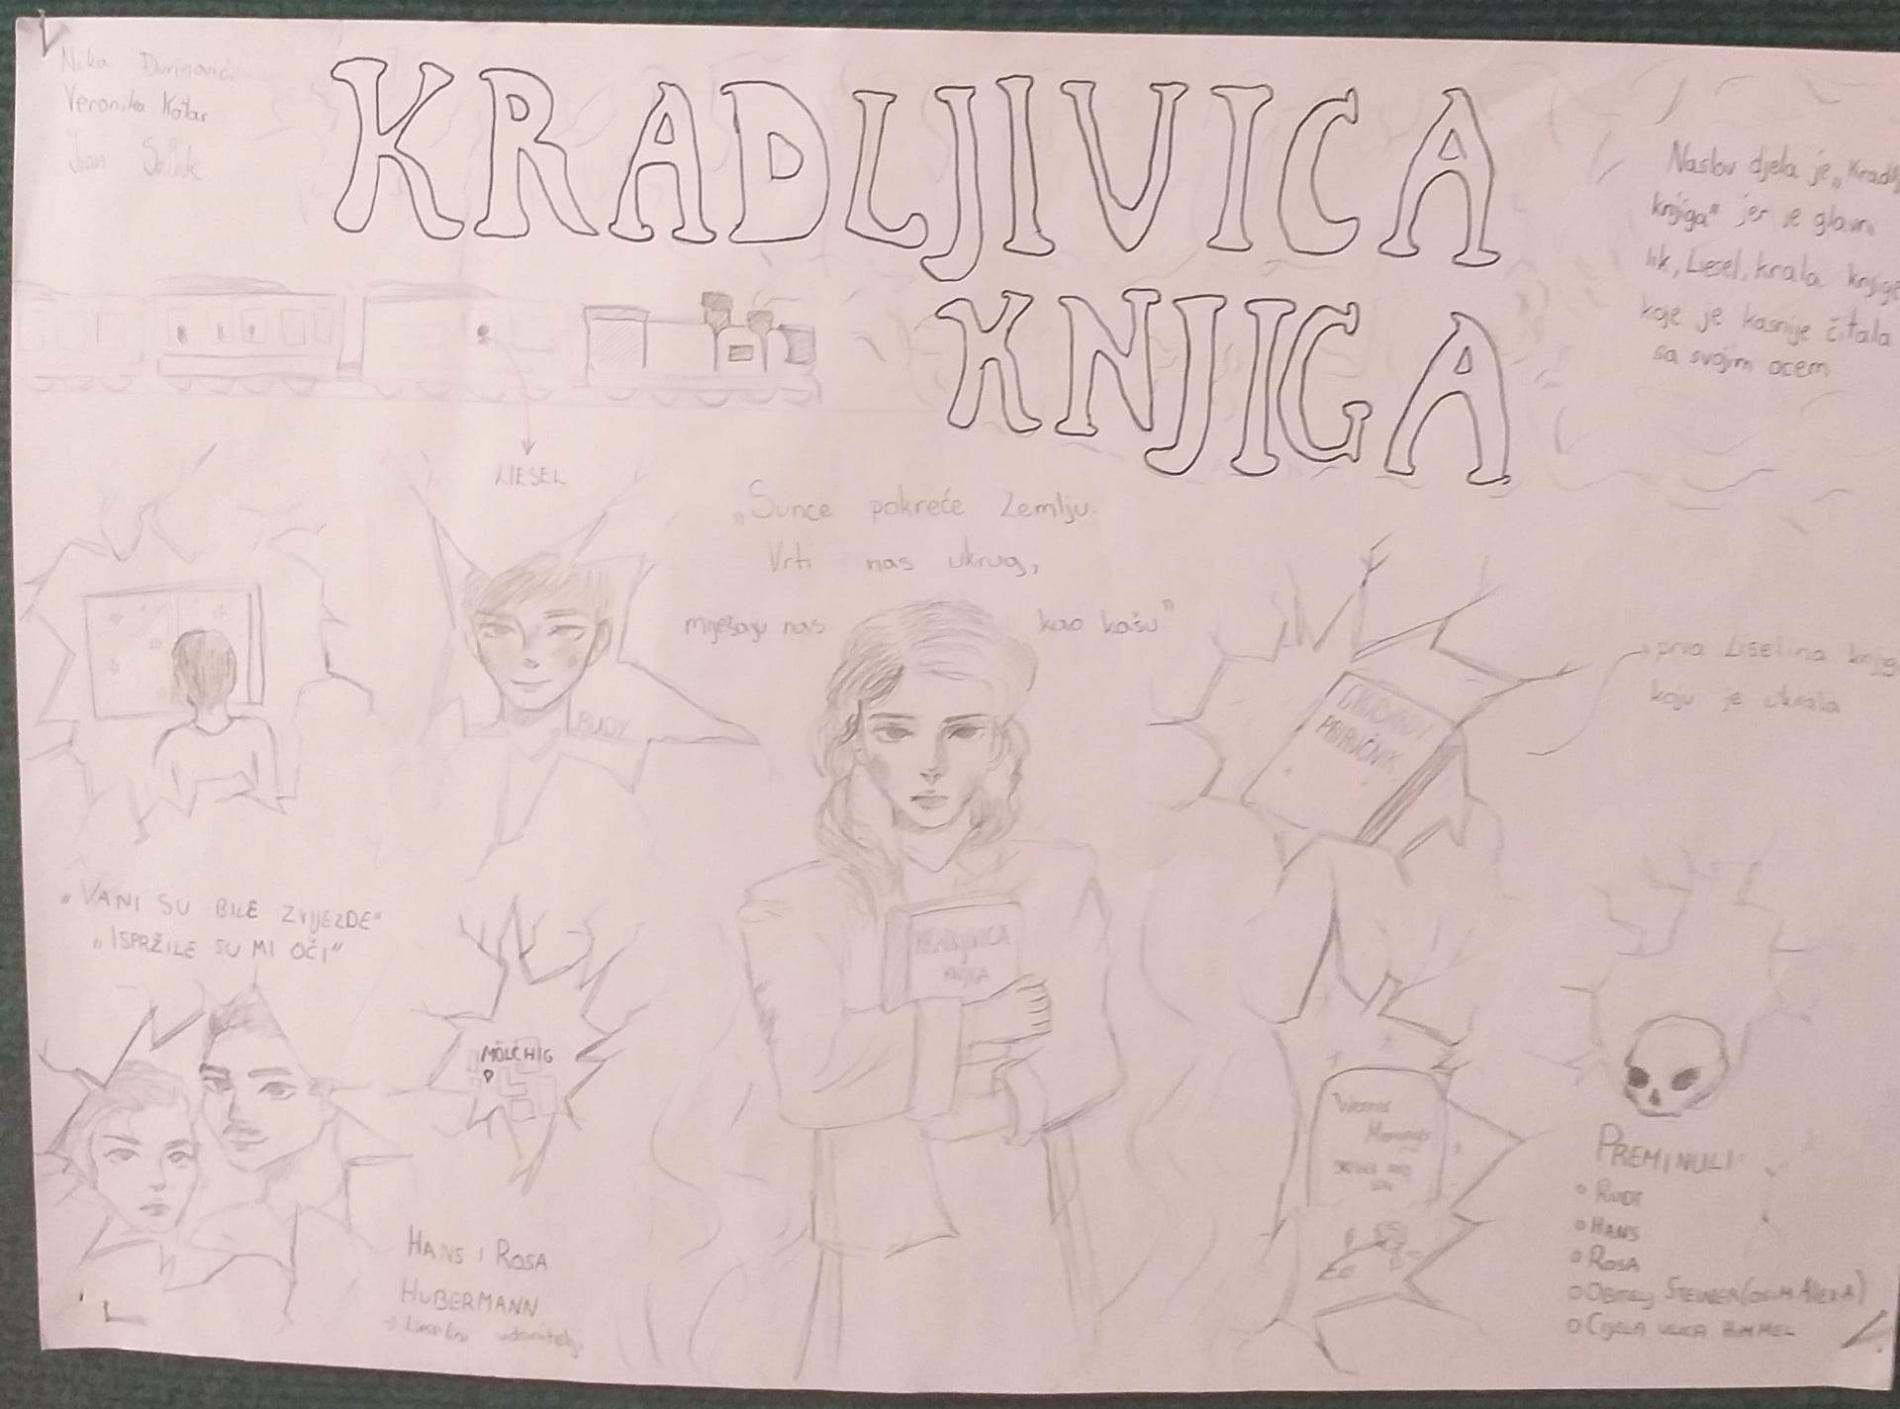 Nika
Veronika Kotar
KRADLJIVICA
KNJIGA
Naslov djela je „Kradlj
knjiga" jer je glavni
lik, Liesel, krala knjige
koje je kasnije čitala
sa svojim ocem
LIESEL
„Sunce pokreće Zemlju.
Vrti nas ukrug,
miješaju nas kao kašu"
RUDY
PRIRUČNIK
prva Liselina knjig
koju je ukrala
„VANI SU BILE ZVIJEZDE"
„ISPRŽILE SU MI OČI"
KRADLJIVICA
KNJIGA
MOLCHIG
HANS I ROSA
HUBERMANN
Werner
PREMINULI
RUDY
HANS
ROSA
OBITELJ STEINER (OSIM ALEXA)
CIJELA ULICA HIMMEL